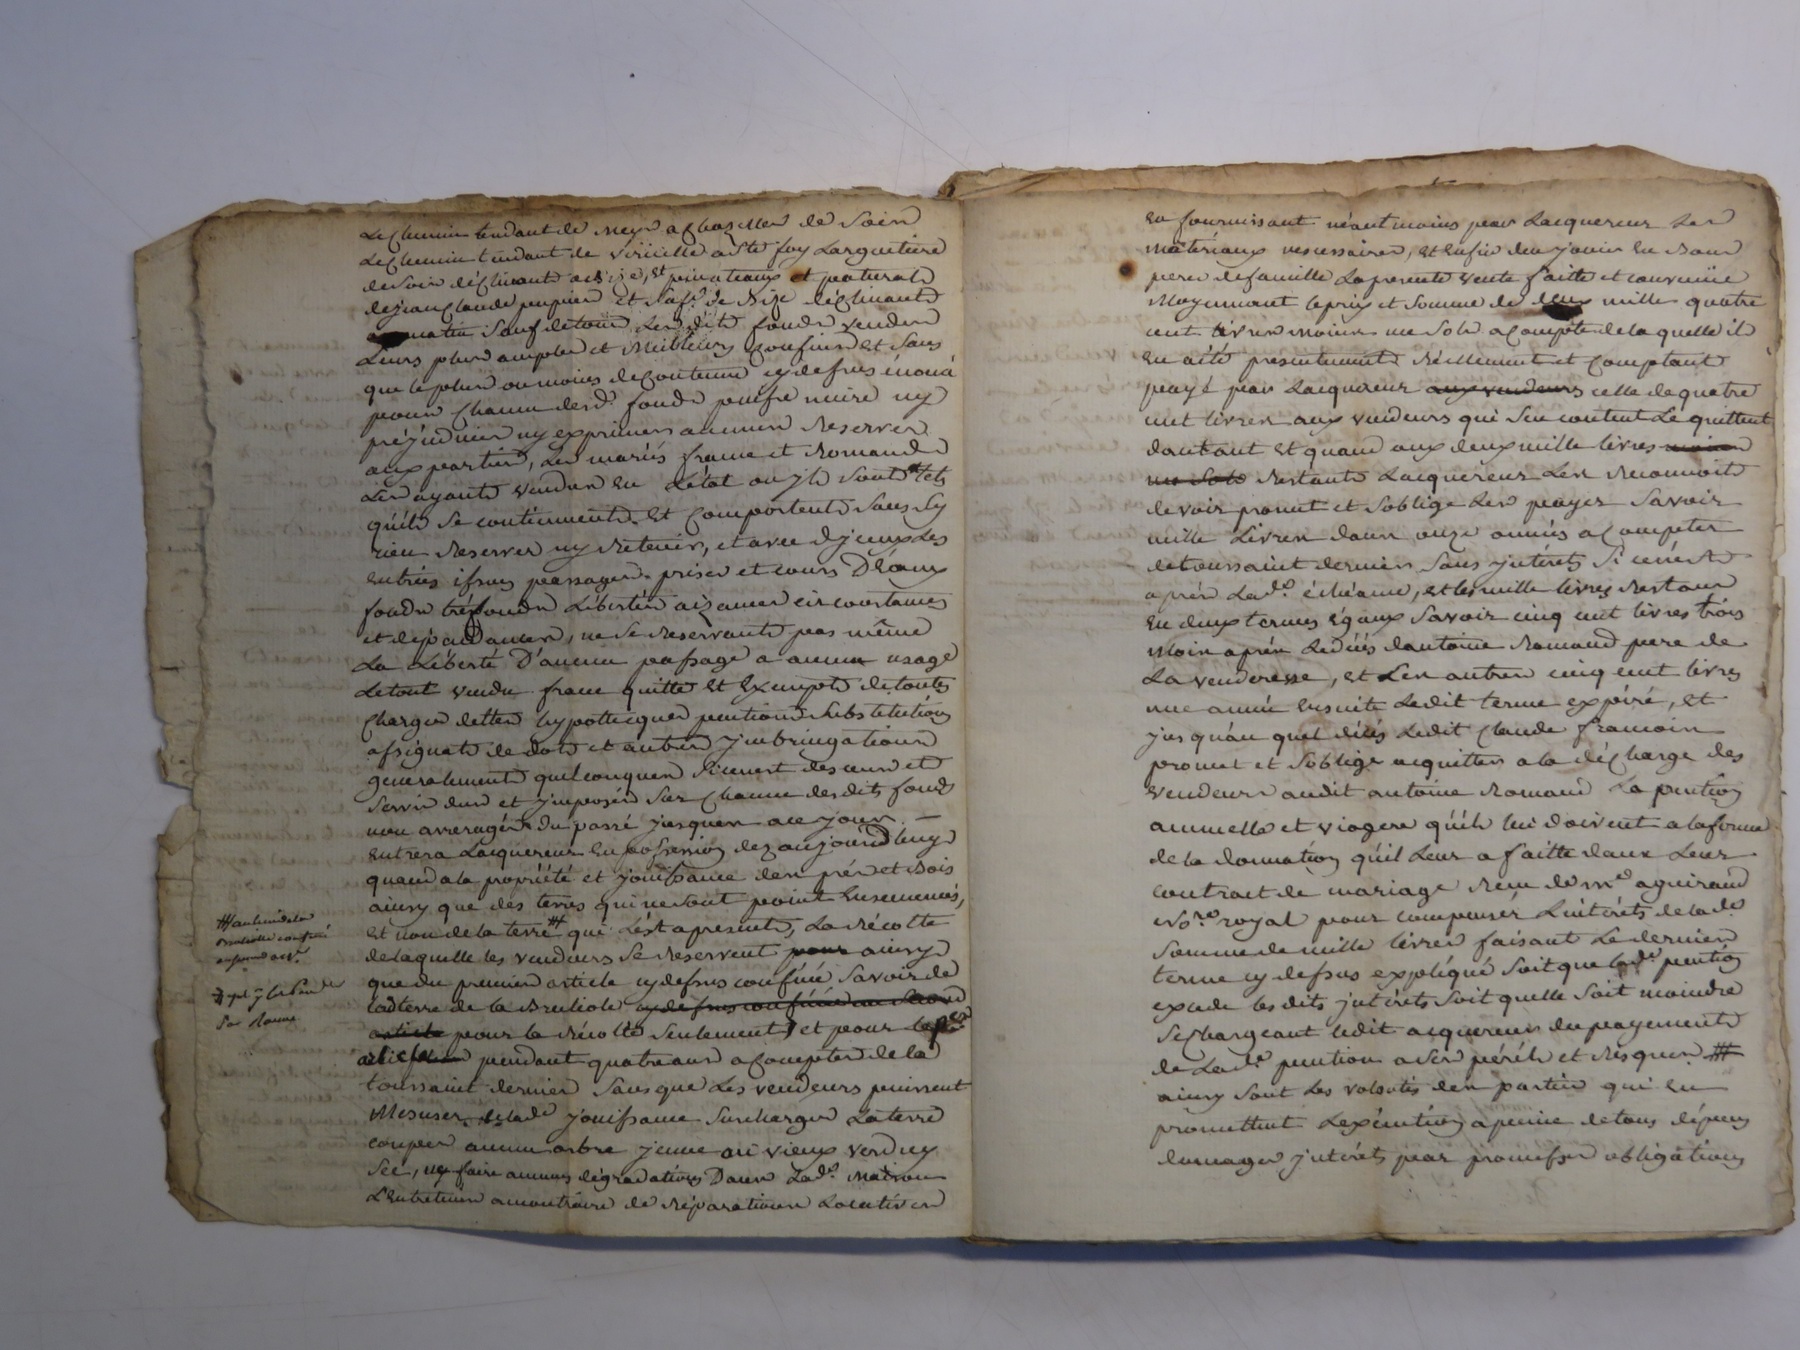 Le Chemin tendant de Meys a Chazelles de Soir
Le Chemin tendant de Viricelle a Ste foy Largentiere
de Soir déclinant a bize, et pinateaux et paturat
de jean Claude et de Bize déclinant
a matin Sauf de tous Les dits fonds vendus
Leurs plus amples et Meilleurs Confins et Sans
que le plus ou moins de Contenue cy dessus énoncé
pour Chacun desd. fonds puisse nuire ny
préjudicier ny exprimer aucunes Reserves
aux parties, Les mariés frame et Romand
Les ayants vendus en L'état ou jls Sont tels
qu'ils Se contiennent et Comportent Sans Sy
rien Reserver ny Retenir, et avec d'jceux Les
entrées issues passages prises et cours D'éaux
fonds tréfonds Libertés aizances circonstances
et dépendances, ne Se Reservants pas même
La Liberté D'aucun passage a aucun usage
Le tout vendu franc quitte et Exempt de toutes
Charges dettes hypotteques pentions Substitutions
assignats de dots et autres jmbringations
generalement quelconques Si cenest des cens et
Servis dus et jmposés Sur Chacun desdits fonds
non arreragés du passé jusques a ce jour. —
Entrera Lacquereur En possession dez aujourd'huy
quand a la propriété et jouissance des prés et Bois
ainsy que des terres qui ne Sont point Ensemencés,
et non de la terre # qui L'est a presents, La Récolte
de laquelle les vendeurs Se Reservent pour ainsy
que du premier article cy dessus confiné Savoir de
lad terre de la Bruliole cy dessus confiné au Second
article pour la Récolte Seulement, et pour le per
article pendant quatre ans a Compter de la
toussaint dernier Sans que Les vendeurs puissent
Mesuser de lade jouissance Surcharger La terre
couper aucun arbre jeune ou vieux verd ny
Sec, ny faire aucunes dégradations Dans Lade. Maison
L'Entretenir a montraire de Réparations Locatives
# au lieu de la
Bruliole confiné
au second art.
En fournissant néantmoins par Lacquereur Les
Matériaux nesessaires, et Enfin d'en jouir En Bon
pere de famille La presente vente faitte et convenüe
Moyennant le prix et Somme de deux mille quatre
cent Livres moins une Sols a Compte de la quelle il
En a été presentement Réellement et Comptant
payé par Lacquereur aux vendeurs celle de quatre
cent livres aux vendeurs qui S'en content Le quittent
dautant et quand aux deux mille livres moins
un Sols Restants Lacquereur Les Reconnoit
devoir promet et Soblige Les payer Savoir
mille Livres dans onze années a Compter
de toussaint dernier Sans jnterêts Si cenest
aprés Lade. échéance, et les mille livres Restans
En deux termes Egaux Savoir cinq cent livres trois
Mois aprés Le décés dantoine Romand pere de
La venderesse, et Les autres cinq cent livres
une année Ensuite Ledit terme expiré, et
jusqu'au quel décés Ledit Claude françois
promet et Soblige acquitter a la décharge des
vendeurs audit antoine Romand La pention
annuelle et viagere qu'ils lui doivent a la forme
de la donnation qu'il Leur a faitte dans Leur
contract de mariage Recu de me aguiraud
No.re royal pour compenser L'intérêts de la de
Somme de mille livres faisant Le dernier
terme cy dessus expliqué Soit que lade pention
excede les dits jnterêts Soit quelle Soit moindre
Se Chargeant ledit acquereur du payement
de Lade pention a Ses périls et Risques #
ainsy Sont Les volontés des parties qui En
promettent L'exécution a peine de tous dépens
domages jnterêts par promesses obligations